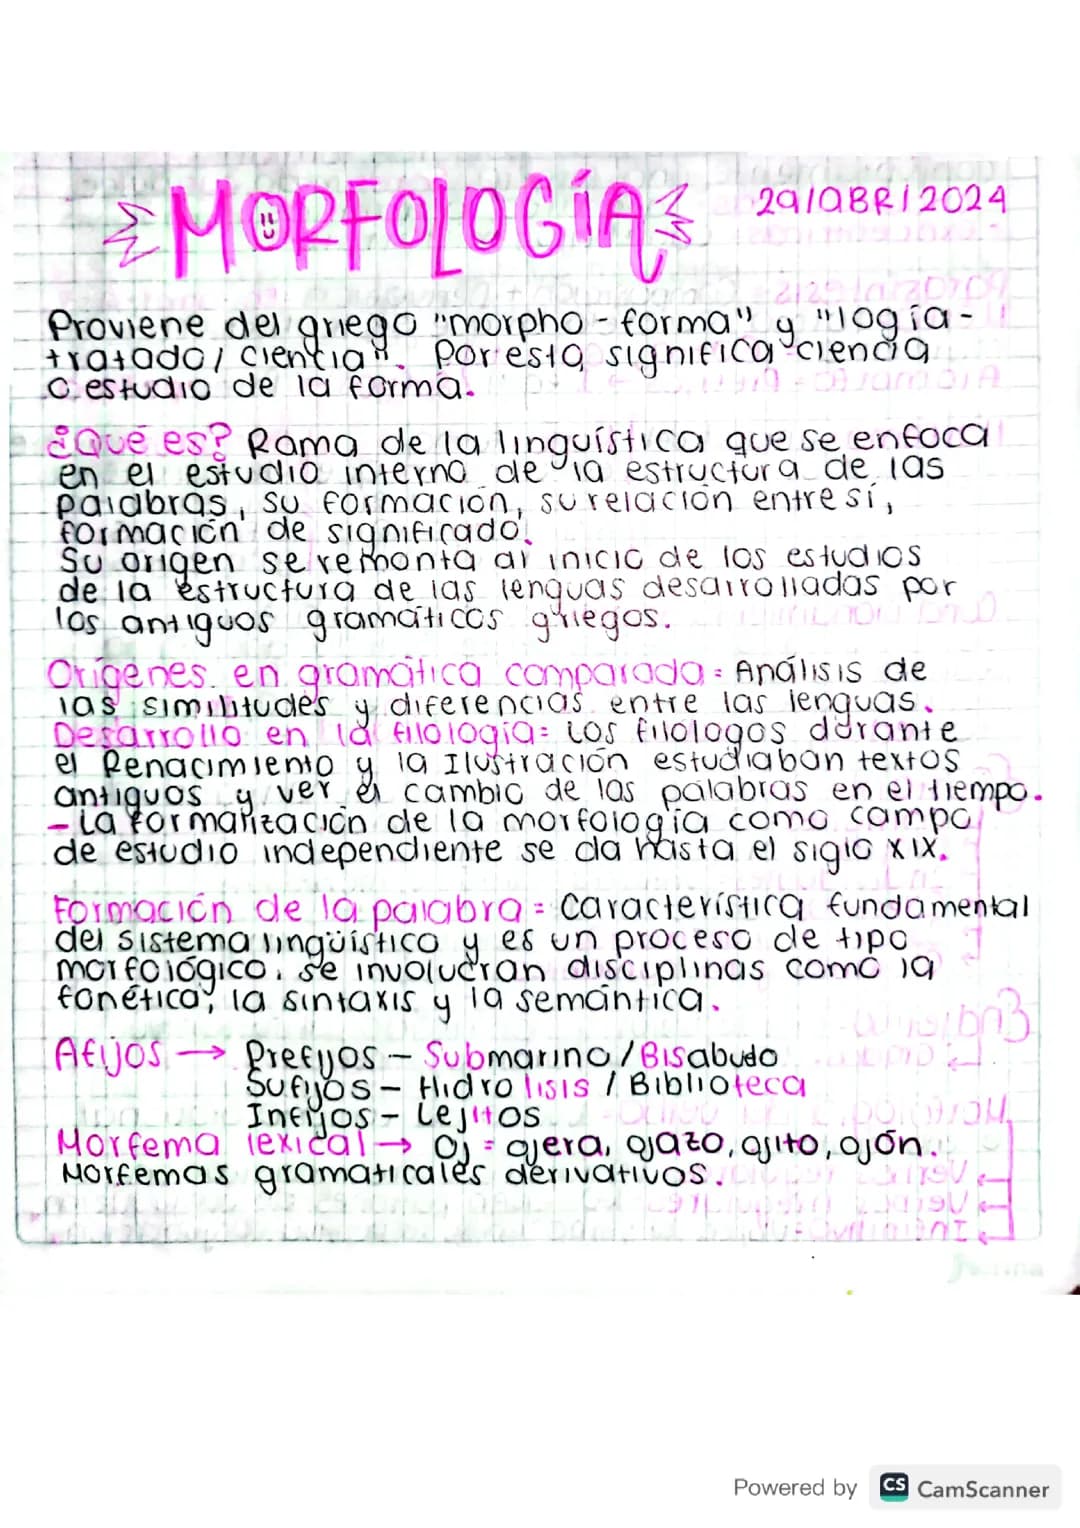 MORFOLOGÍA 29/ABR/2024
Proviene del griego "morpho - forma" y "logía -
tratado/ ciencia". Por esta significa ciencia
o estudio de la forma.
¿Qué es? Rama de la linguística que se enfoca
en el estudio interno de la estructura de las
palabras, su formación, su relación entre sí,
formación de significado.
Su origen se remonta al inicio de los estudios
de la estructura de las lenguas desarrolladas por
los antiguos gramáticos griegos.
Orígenes en gramática comparada = Análisis de
las similitudes y diferencias entre las lenguas.
Desarrollo en la filología = Los filólogos durante
el Renacimiento y la Ilustración estudiaban textos
antiguos y ver el cambio de las palabras en el tiempo.
- La formalización de la morfología como campo
de estudio independiente se da hasta el siglo XIX.
Formación de la palabra = Característica fundamental
del sistema lingüístico y es un proceso de tipo
morfológico. Se involucran disciplinas como la
fonética, la sintaxis y la semántica.
Afijos → Prefijos - Submarino / Bisabudo
Sufijos - Hidrolisis / Biblioteca
Infijos - Lejitos
Morfema lexical → Oj = ojera, ojazo, ojito, ojón.
Morfemas gramaticales derivativos.
Powered by CS CamScanner